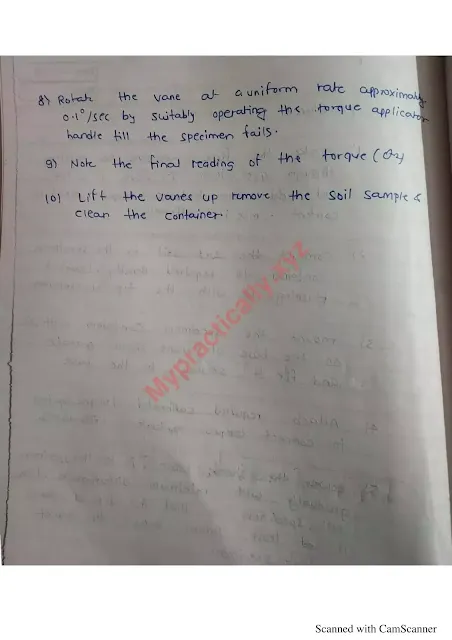 8) Rotate the vane at a uniform rate approximately
0.1°/sec by suitably operating the torque applicator
handle till the specimen fails.
9) Note the final reading of the torque (θ2)
10) Lift the vanes up remove the soil sample &
clean the container.
Mypractically.xyz
Scanned with CamScanner